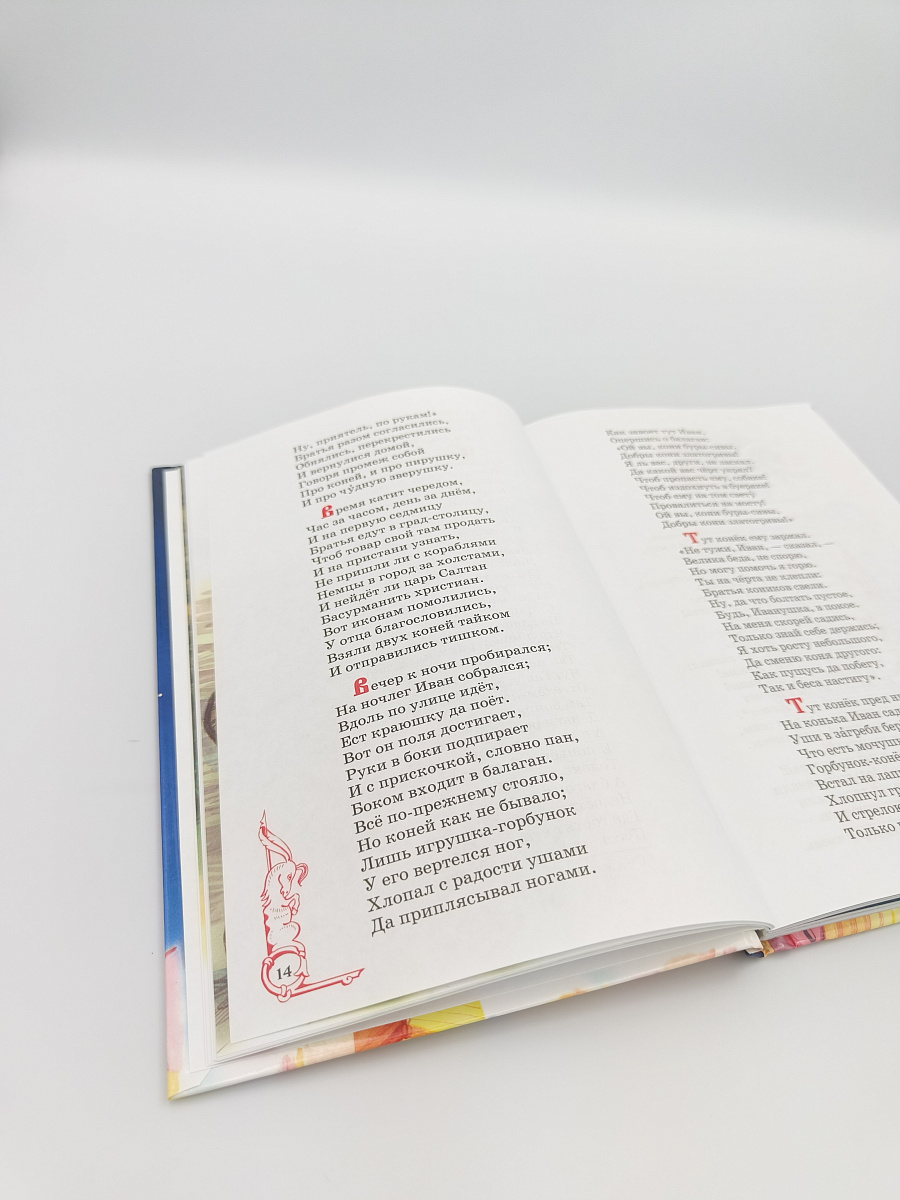 Ну, приятель, по рукам!»
Братья разом согласились,
Обнялись, перекрестились
И вернулися домой,
Говоря промеж собой
Про коней, и про пирушку,
И про чу́дную зверушку.
Время катит чередом,
Час за часом, день за днём,
И на первую седмицу
Братья едут в град-столицу,
Чтоб товар свой там продать
И на пристани узнать,
Не пришли ли с кораблями
Немцы в город за холстами,
И нейдёт ли царь Салтан
Басурманить христиан.
Вот иконам помолились,
У отца благословились,
Взяли двух коней тайком
И отправились тишком.
Вечер к ночи пробирался;
На ночлег Иван собрался;
Вдоль по улице идёт,
Ест краюшку да поёт.
Вот он поля достигает,
Руки в боки подпирает
И с прискочкой, словно пан,
Боком входит в балаган.
Всё по-прежнему стояло,
Но коней как не бывало;
Лишь игрушка-горбунок
У его вертелся ног,
Хлопал с радости ушами
Да приплясывал ногами.
14
Как завоет тут Иван,
Опершись о балаган:
«Ой вы, кони буры-сивы,
Добры кони златогривы!
Я ль вас, други, не ласкал,
Да какой вас чёрт украл?
Чтоб пропасть ему, собаке!
Чтоб издохнуть в буераке!
Чтоб ему на том свету́
Провалиться на мосту!
Ой вы, кони буры-сивы,
Добры кони златогривы!»
Тут конёк ему заржал.
«Не тужи, Иван, — сказал, —
Велика беда, не спорю,
Но могу помочь я горю.
Ты на чёрта не клепли:
Братья коников свели.
Ну, да что болтать пустое,
Будь, Иванушка, в покое.
На меня скорей садись,
Только знай себе держись;
Я хоть росту небольшого,
Да сменю коня другого:
Как пущусь да побегу,
Так и беса настигу».
Тут конёк пред
На конька Иван
Уши в за́греби
Что есть мочушки
Горбунок-конёк
Встал на
Хлопнул
И стрелою
Только